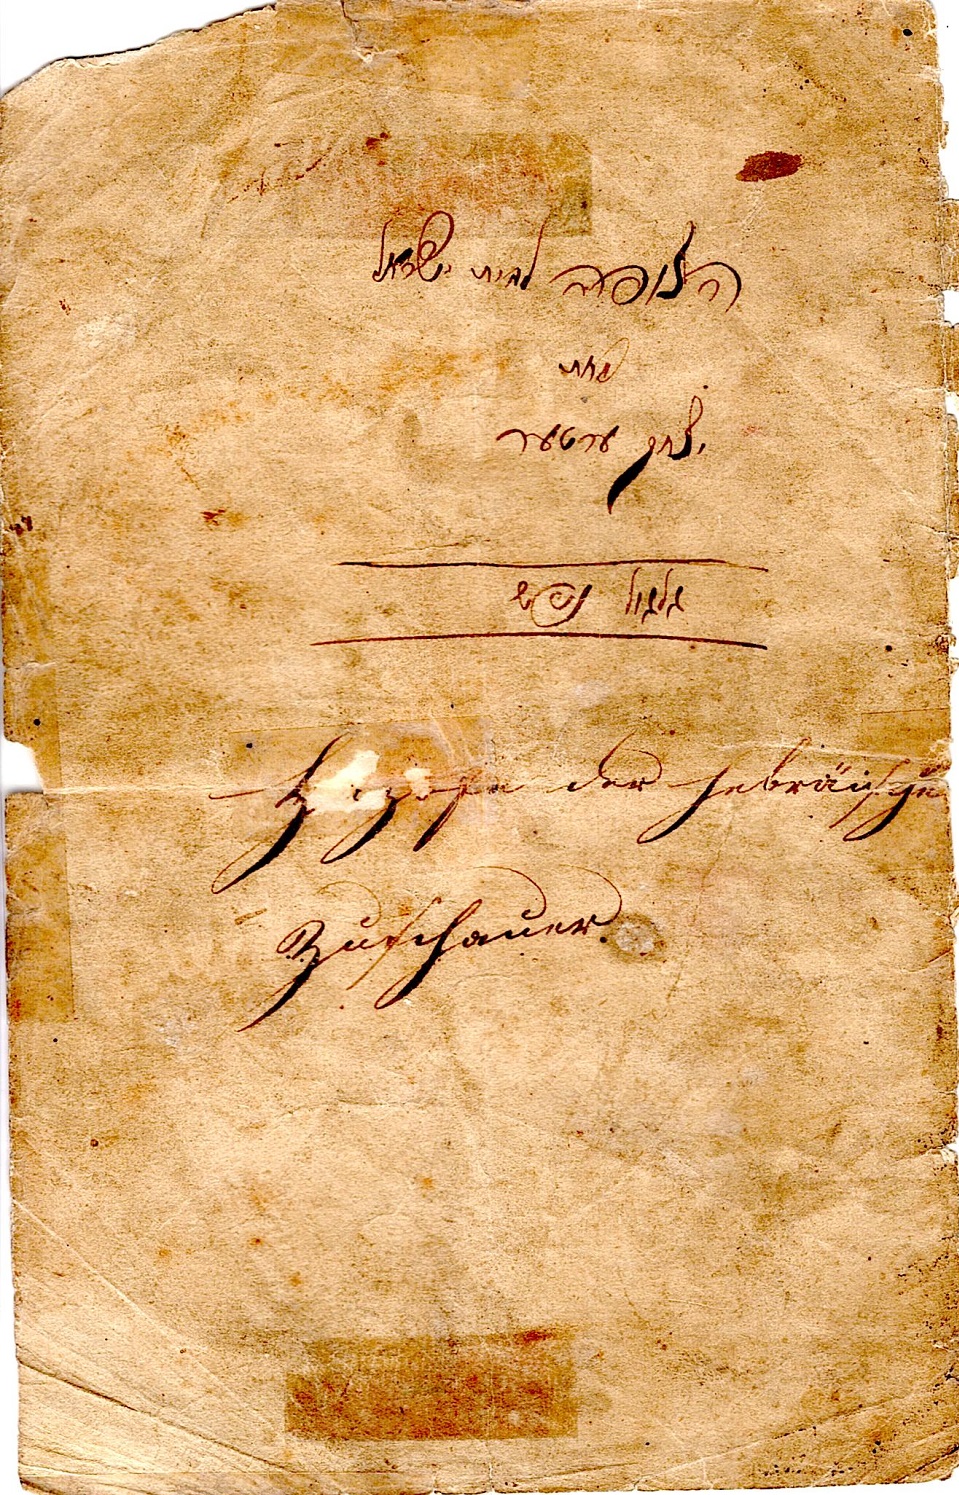 הצופה לבית ישראל
מאת
יצחק ערטער
גלגול נפש
Hazofe der hebräische
Zuschauer.